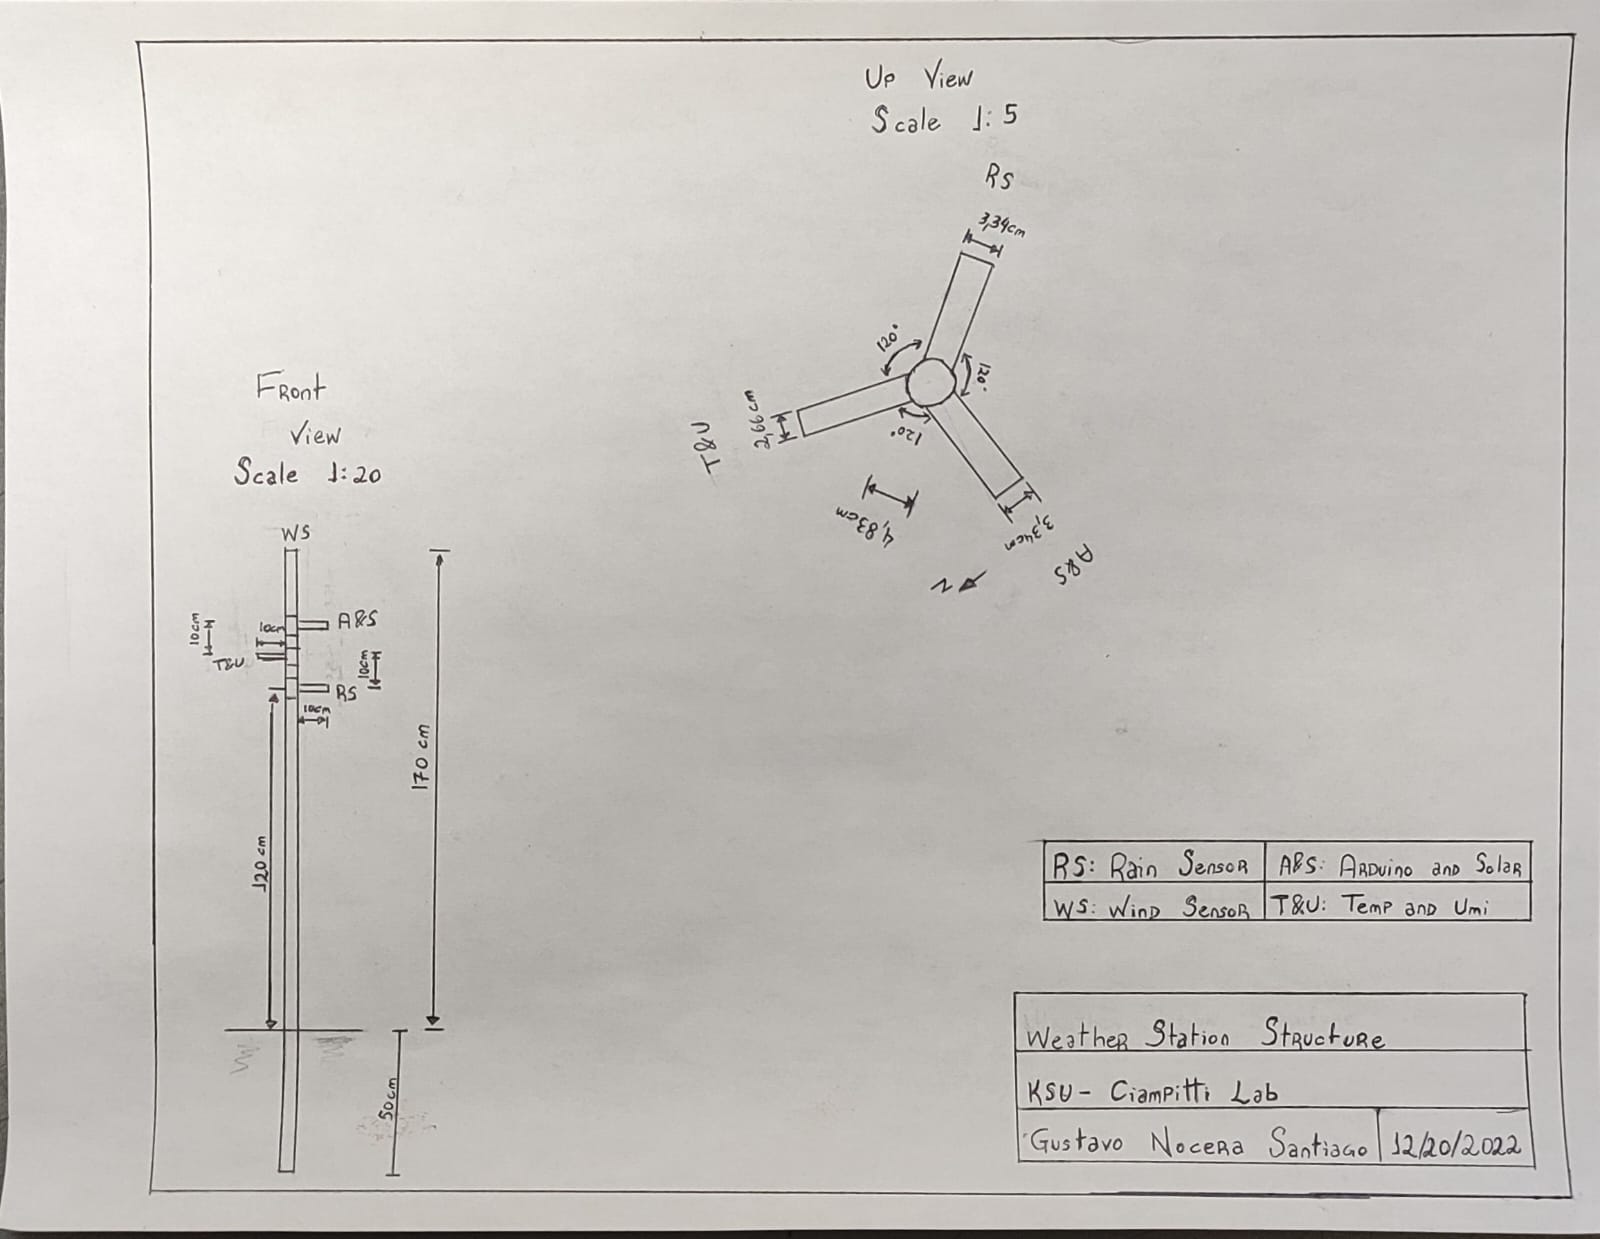 Up View
Scale 1:5
RS
3,34cm
120°
120°
120°
2,99cm
T&U
4,83cm
3,34cm
A&S
N
Front
View
Scale 1:20
WS
A&S
10cm
10cm
T&U
10cm
RS
10cm
170 cm
120 cm
50cm
RS: Rain Sensor A&S: Arduino and Solar
WS: Wind Sensor T&U: Temp and Umi
Weather Station Structure
KSU - Ciampitti Lab
Gustavo Nocera Santiago 12/20/2022